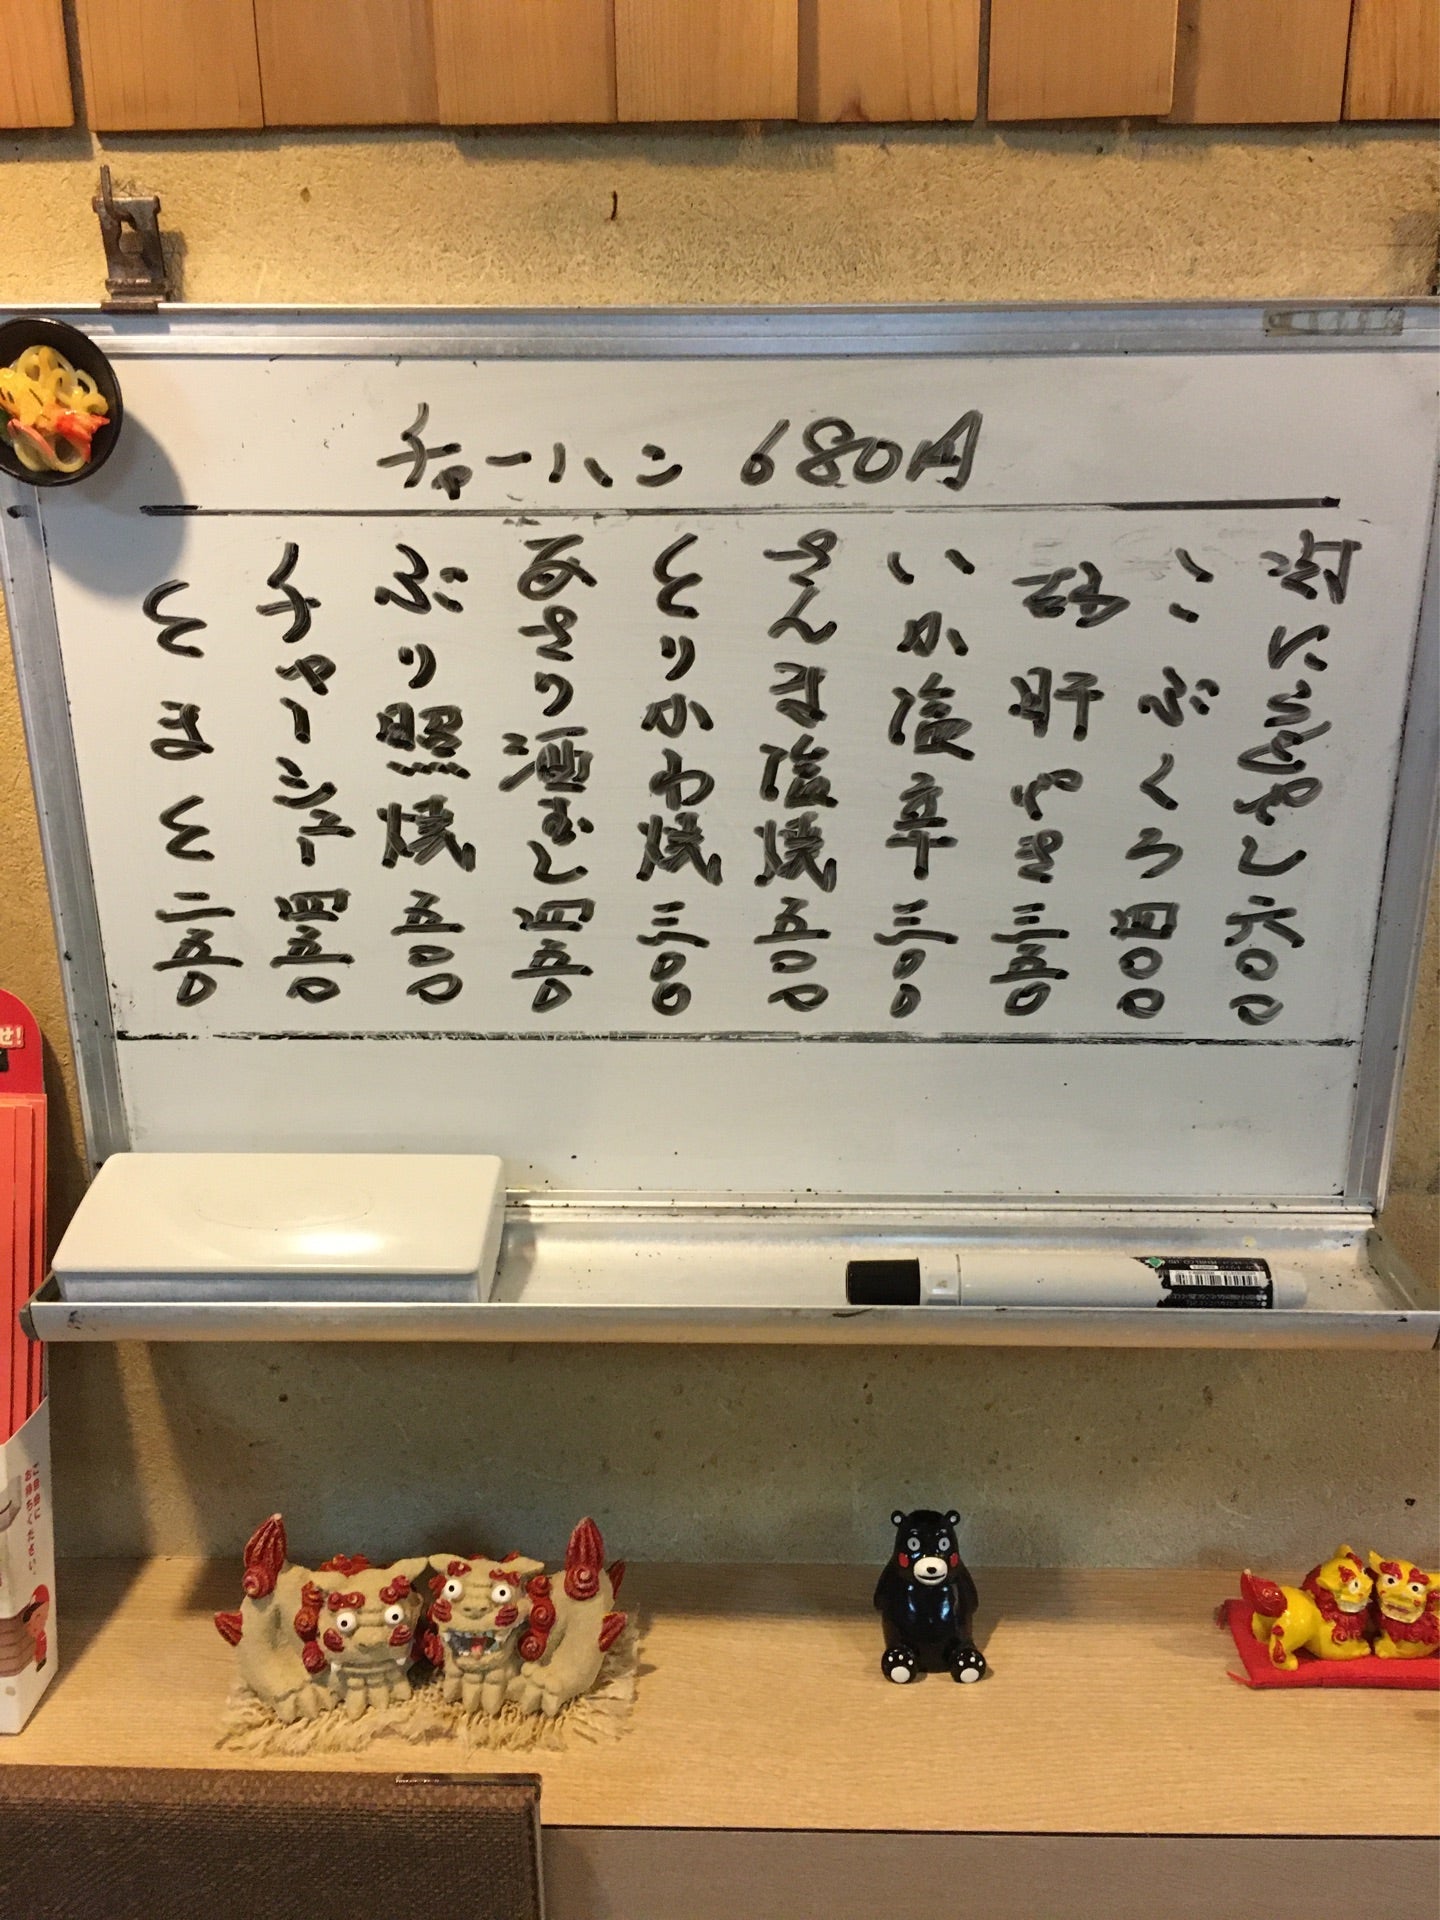 チャーハン 680円
こぶくろ 四〇〇
砂肝やき 三五〇
いか塩辛 三〇〇
さんま塩焼 五〇〇
とりかわ焼 三〇〇
あさり酒むし 四五〇
ぶり照焼 五〇〇
チャーシュー 四五〇
とまと 二五〇
せ!